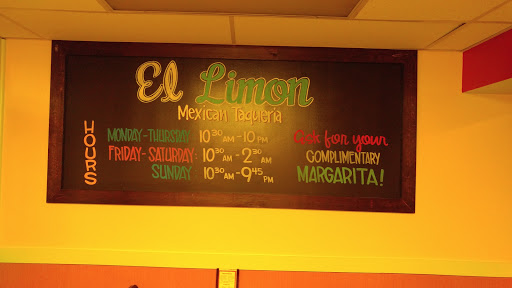 El Limon
Mexican Taqueria
HOURS
MONDAY-THURSDAY 10:30 AM - 10 PM
FRIDAY-SATURDAY: 10:30 AM - 2:30 AM
SUNDAY 10:30 AM - 9:45 PM
Ask for your
COMPLIMENTARY
MARGARITA!